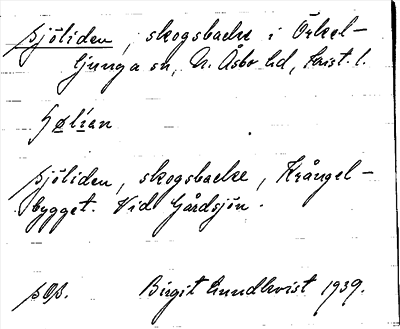 Sjöliden, skogsbacke i Örkel-
ljunga sn, N. Åsbo hd, Krist. l.
Sjöliden, skogsbacke, Krångel-
bygget. Vid Gårdsjön.
Birgit Lundkvist 1939.